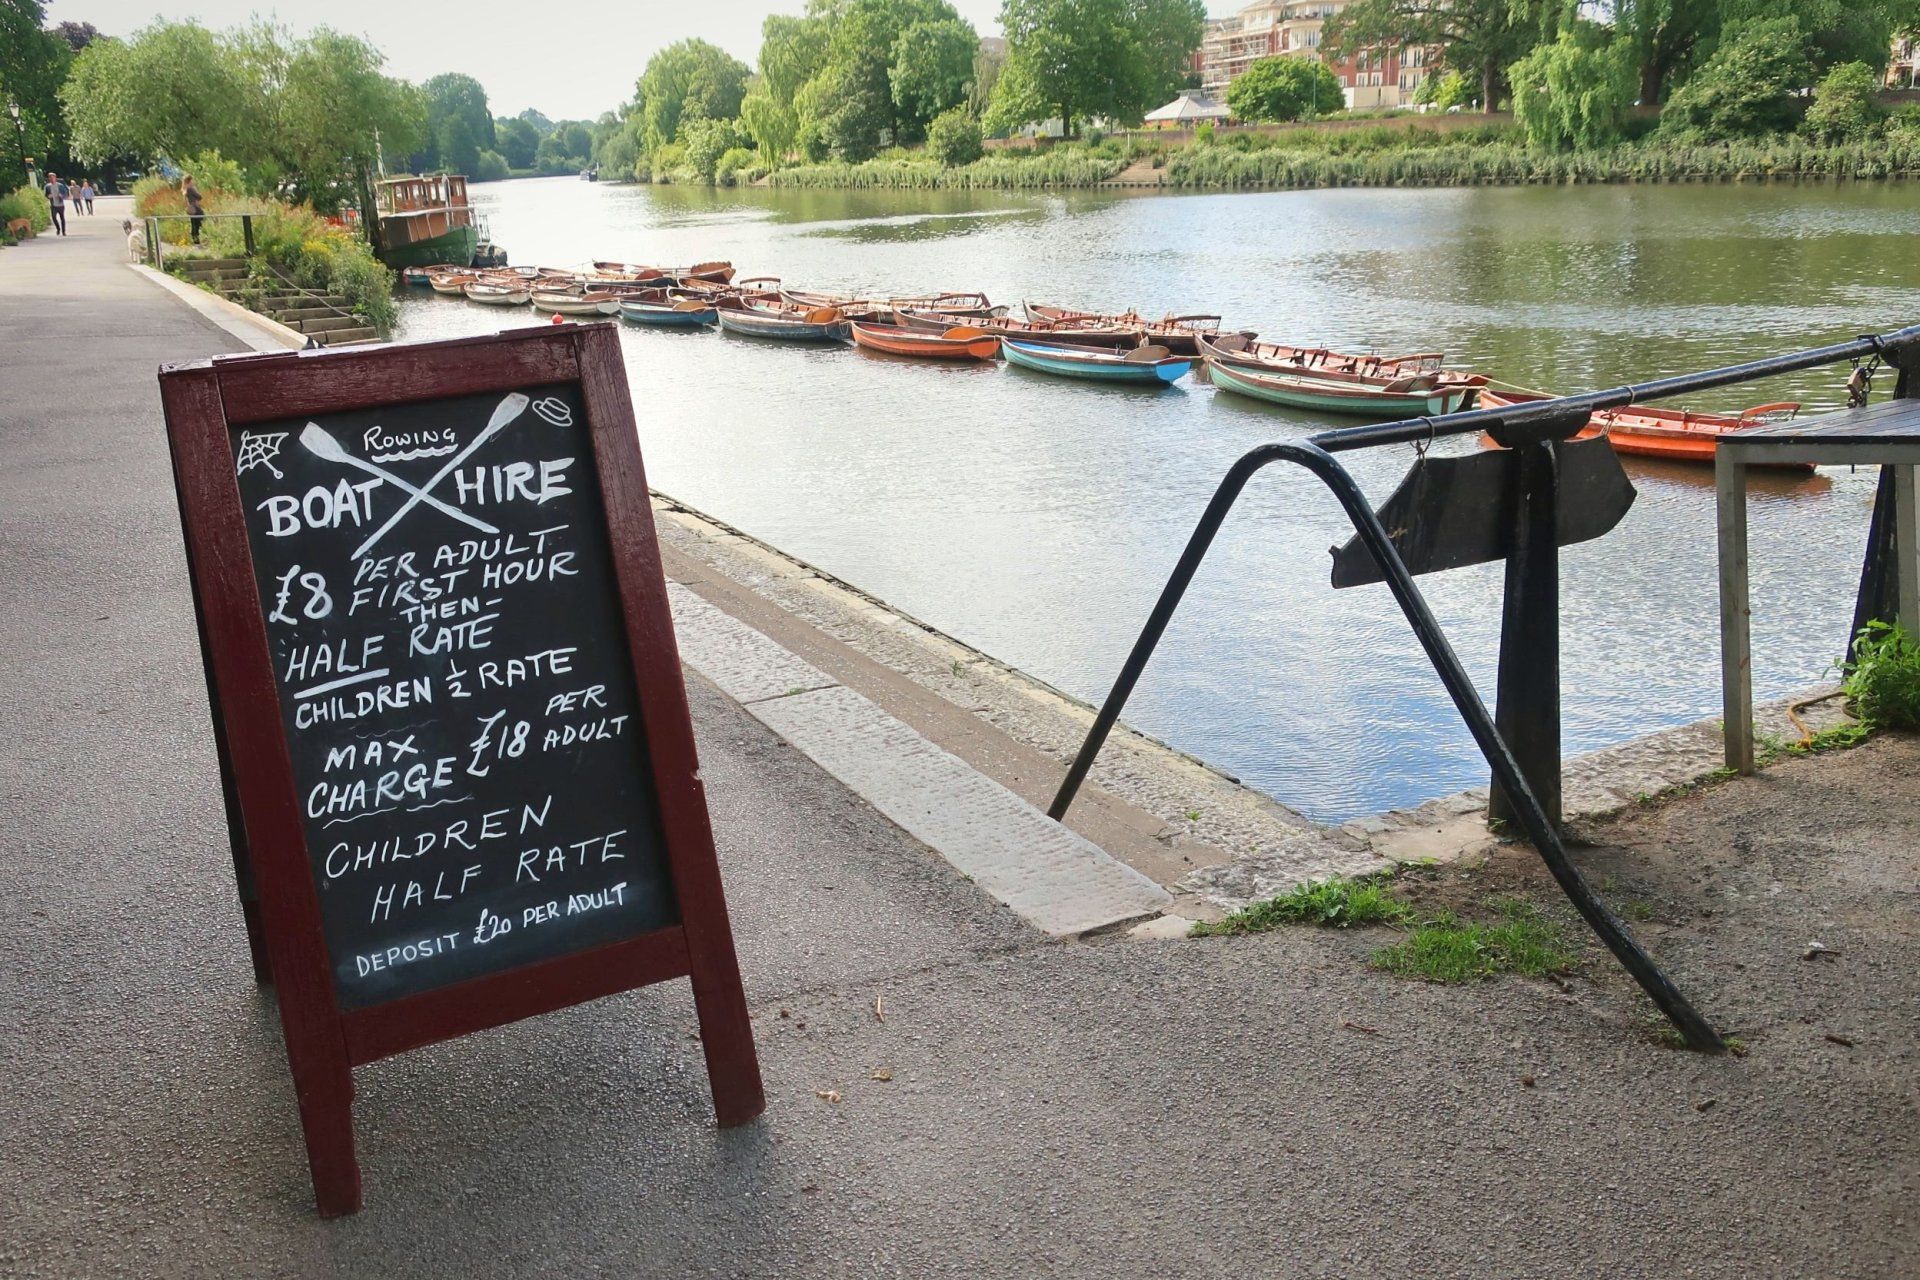 ROWING
BOAT HIRE
£8 PER ADULT
FIRST HOUR
THEN-
HALF RATE
CHILDREN ½ RATE
MAX
CHARGE £18 PER
ADULT
CHILDREN
HALF RATE
DEPOSIT £20 PER ADULT